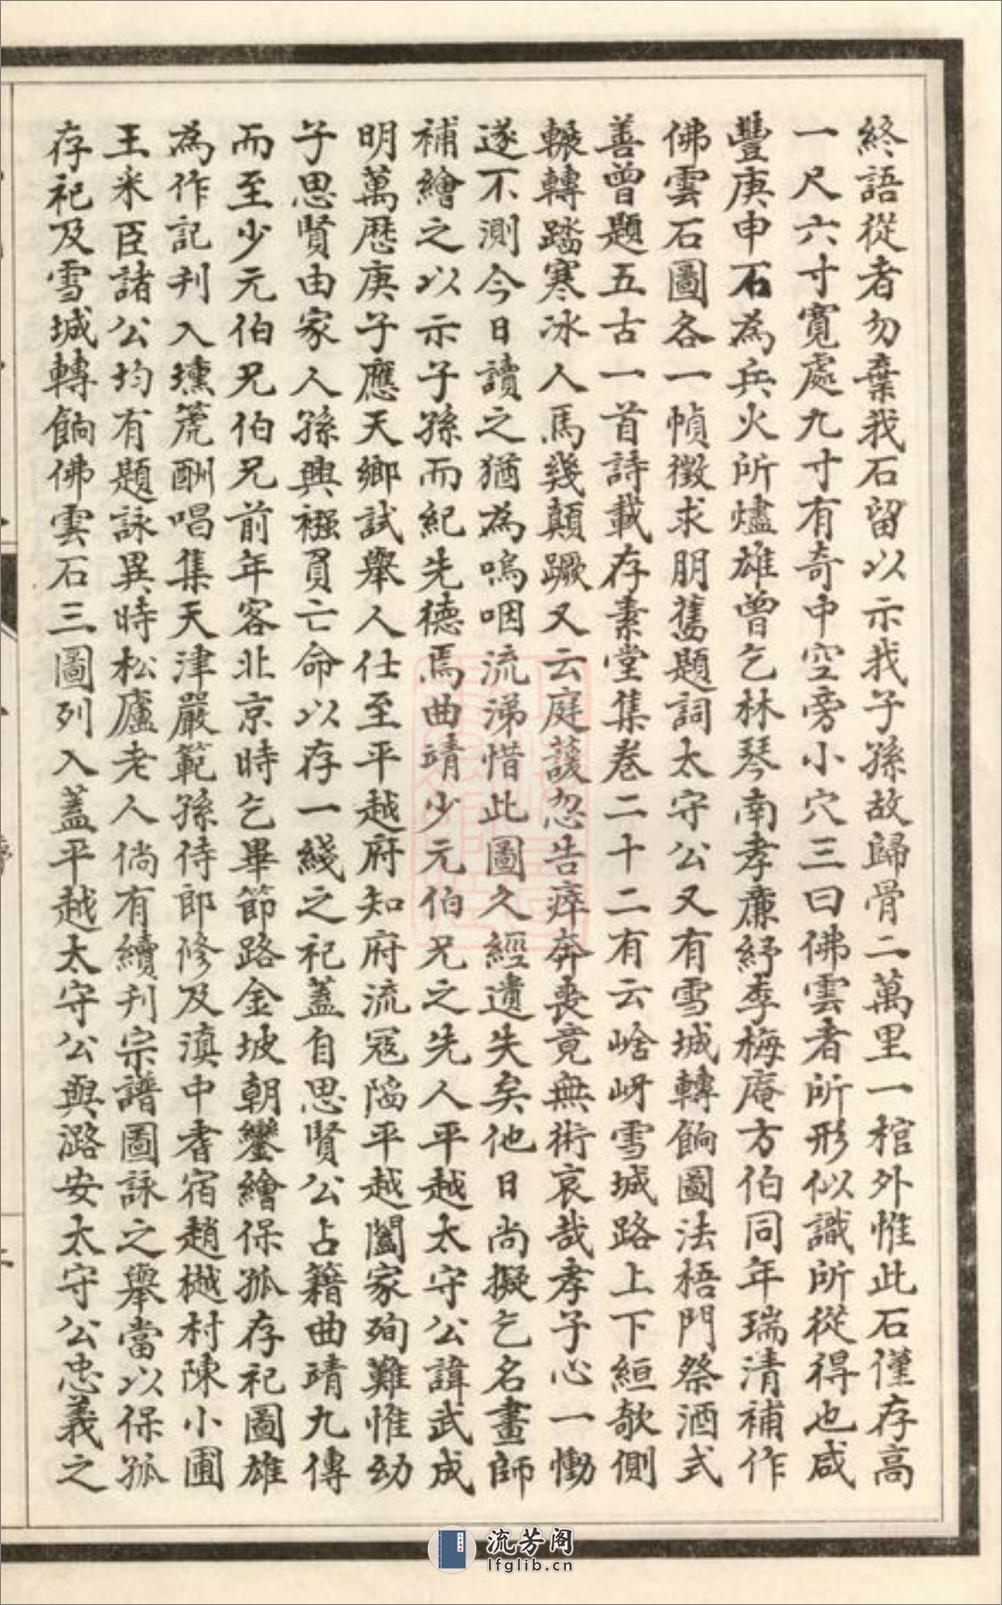 終語從者勿棄我石留以示我子孫故歸骨二萬里一棺外惟此石僅存高
一尺六寸寬處九寸有奇中空旁小穴三曰佛雲者所形似識所從得也咸
豐庚申石為兵火所燼雄曾乞林琴南孝廉紓李梅庵方伯同年瑞清補作
佛雲石圖各一幀徵求朋舊題詞太守公又有雪城轉餉圖法梧門祭酒式
善曾題五古一首詩載存素堂集卷二十二有云峆岈雪城路上下緪欹側
輾轉踏寒冰人馬幾顛蹶又云庭蘐忽告瘁奔喪竟無術哀哉孝子心一慟
遂不測今日讀之猶為嗚咽流涕惜此圖久經遺失矣他日尚擬乞名畫師
補繪之以示子孫而紀先德焉曲靖少元伯兄之先人平越太守公諱武成
明萬歷庚子應天鄉試舉人仕至平越府知府流寇陷平越闔家殉難惟幼
子思賢由家人孫興襁負亡命以存一綫之祀蓋自思賢公占籍曲靖九傳
而至少元伯兄伯兄前年客北京時乞畢節路金坡朝鑾繪保孤存祀圖雄
為作記刊入壎箎酬唱集天津嚴範孫侍郎修及滇中耆宿趙樾村陳小圃
王米臣諸公均有題詠異時松廬老人倘有續刊宗譜圖詠之舉當以保孤
存祀及雪城轉餉佛雲石三圖列入蓋平越太守公與潞安太守公忠義之
流芳阁
lfglib.cn